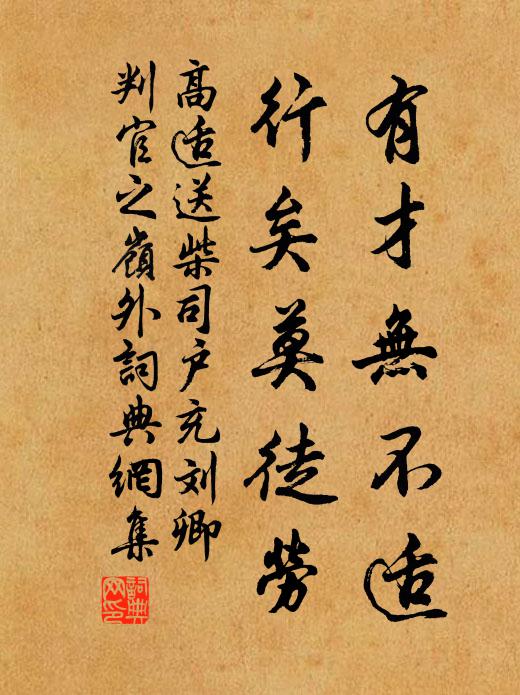 有才無不适
行矣莫徒勞
高适送柴司户充刘卿
判官之嶺外詞典網集
詞典網印